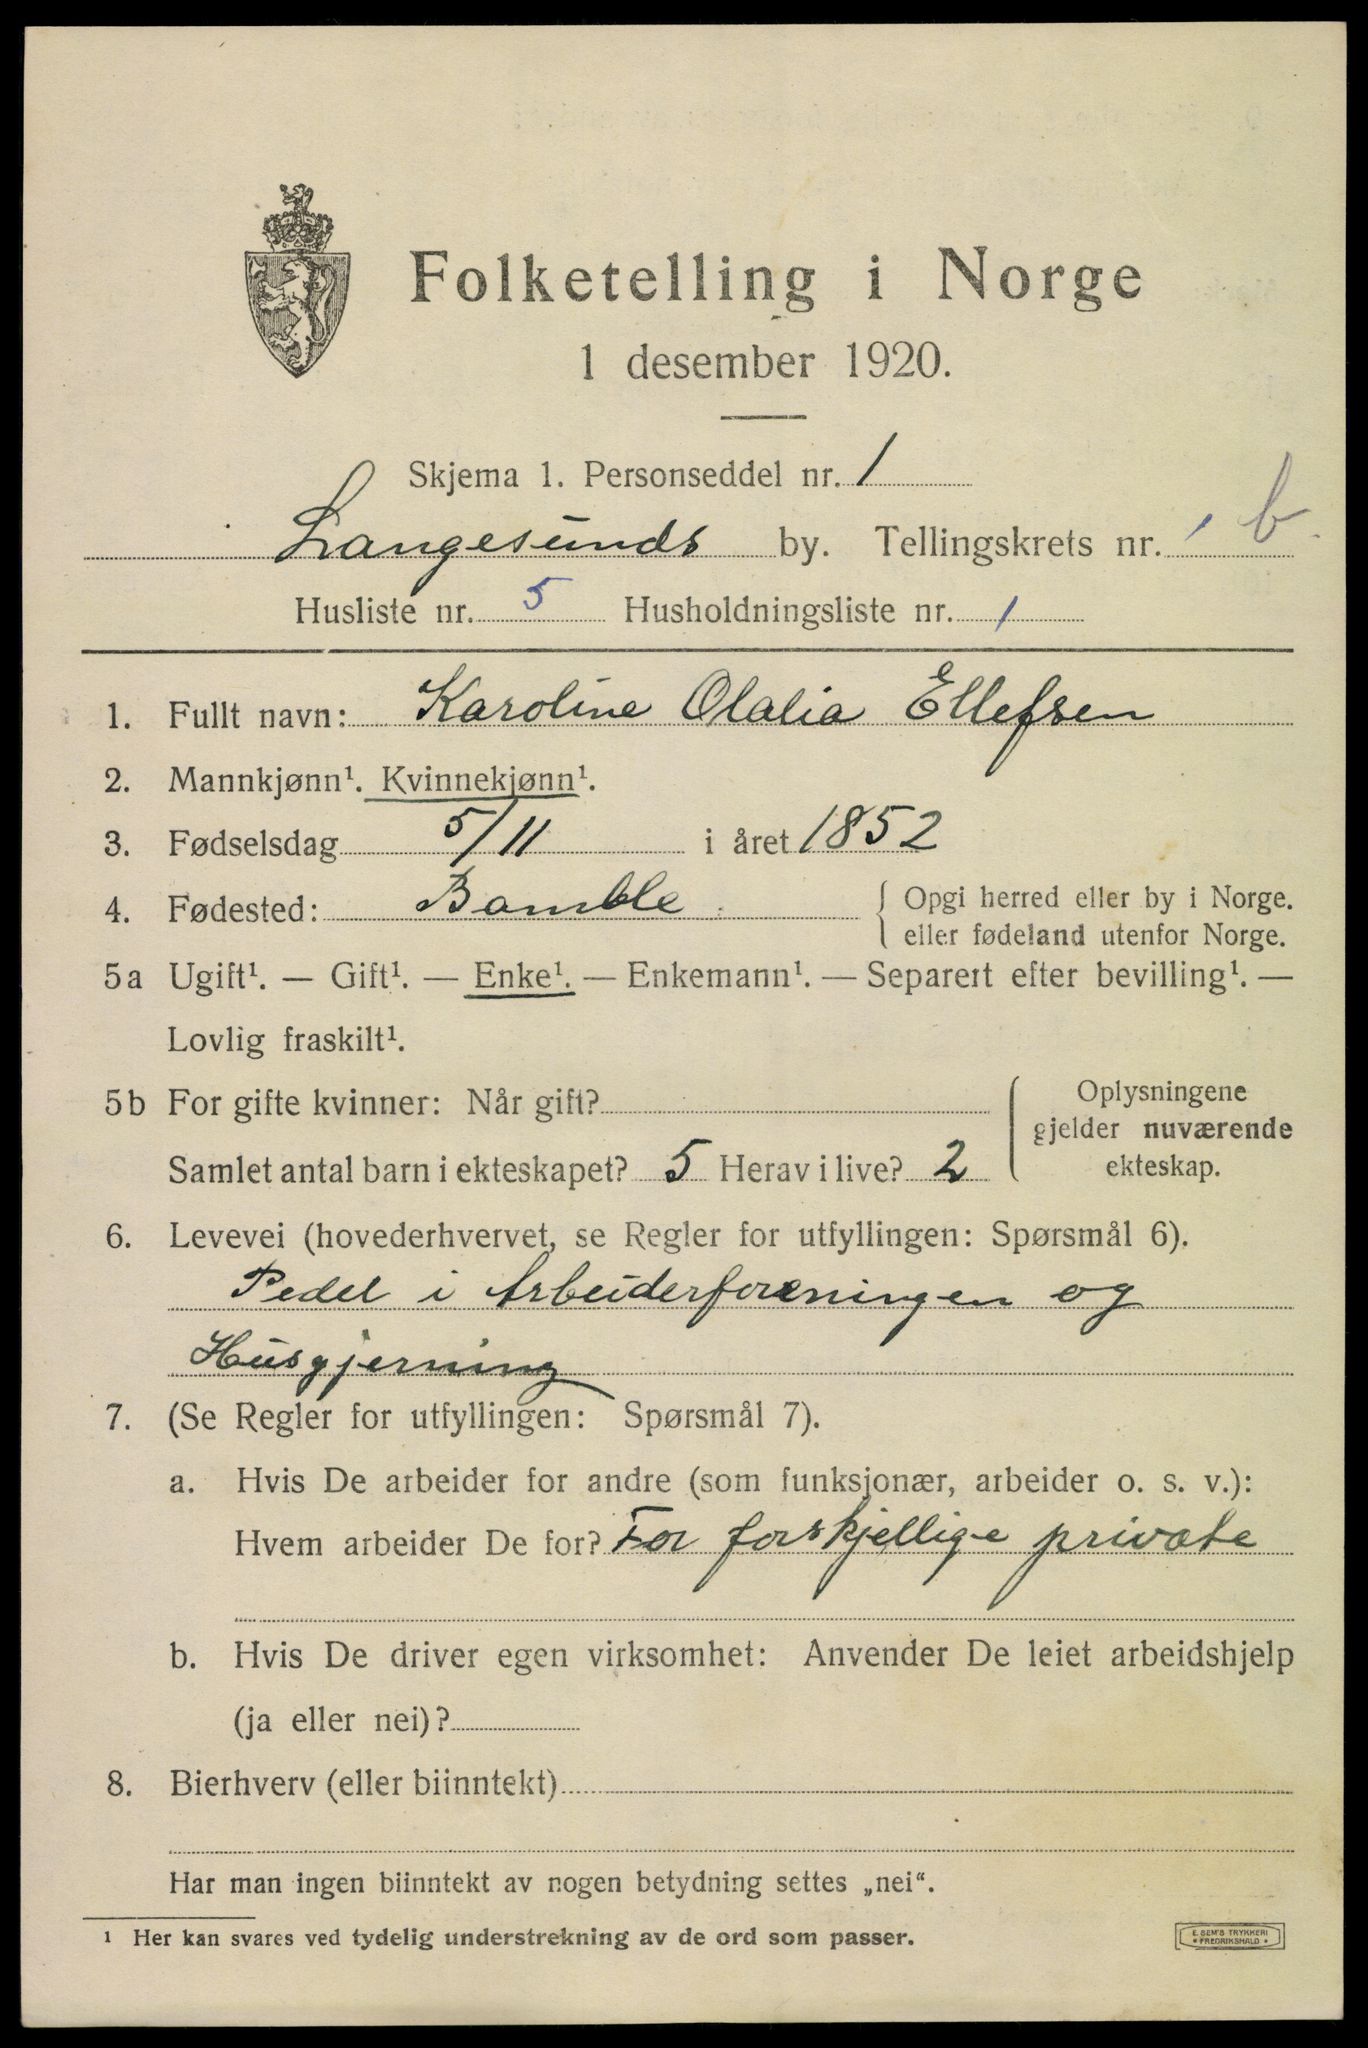 Folketelling i Norge
1 desember 1920.
Skjema 1. Personseddel nr. 1
Langesunds by. Tellingskrets nr. 1 b
Husliste nr. 5 Husholdningsliste nr. 1
1. Fullt navn: Karoline Olalia Ellefsen
2. Mannkjønn¹. Kvinnekjønn¹.
3. Fødselsdag 5/11 i året 1852
4. Fødested: Bamble { Opgi herred eller by i Norge.
eller fødeland utenfor Norge.
5a Ugift¹. — Gift¹. — Enke¹. — Enkemann¹. — Separert efter bevilling¹. —
Lovlig fraskilt¹.
5b For gifte kvinner: Når gift?
Samlet antal barn i ekteskapet? 5 Herav i live? 2
Oplysningene
gjelder nuværende
ekteskap.
6. Levevei (hovederhvervet, se Regler for utfyllingen: Spørsmål 6).
Pedel i Arbeiderforeningen og
Husgjerning
7. (Se Regler for utfyllingen: Spørsmål 7).
a. Hvis De arbeider for andre (som funksjonær, arbeider o. s. v.):
Hvem arbeider De for? For forskjellige private
b. Hvis De driver egen virksomhet: Anvender De leiet arbeidshjelp
(ja eller nei)?
8. Bierhverv (eller biinntekt)
Har man ingen biinntekt av nogen betydning settes „nei“.
¹ Her kan svares ved tydelig understrekning av de ord som passer.
E. SEM'S TRYKKERI
* FREDRIKSHALD *